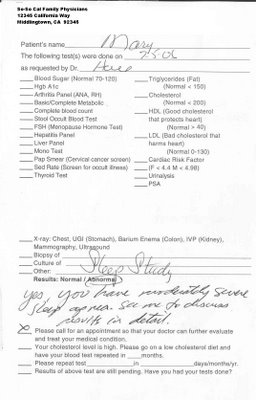 So-So Cal Family Physicians
12345 California Way
Middlingtown, CA 92345
Patient's name Mary
The following test(s) were done on
as requested by Dr.
Blood Sugar (Normal 70-120)
Hgb A1c
Arthritis Panel (ANA, RH)
Basic/Complete Metabolic
Complete blood count
Stool Occult Blood Test
FSH (Menopause Hormone Test)
Hepatitis Panel
Liver Panel
Mono Test
Pap Smear (Cervical cancer screen)
Sed Rate (Screen for occult illness)
Thyroid Test
Triglycerides (Fat)
(Normal < 150)
Cholesterol
(Normal < 200)
HDL (Good cholesterol
that protects heart)
(Normal > 40)
LDL (Bad cholesterol that
harms heart)
(Normal 0-130)
Cardiac Risk Factor
(F < 4.4 M < 4.98)
Urinalysis
PSA
X-ray: Chest, UGI (Stomach), Barium Enema (Colon), IVP (Kidney),
Mammography, Ultrasound
Biopsy of
Culture of
Other: Sleep Study
Results: Normal / Abnormal
Yes, you have moderately severe
sleep apnea. See me to discuss
results in detail.
Please call for an appointment so that your doctor can further evaluate
and treat your medical condition.
Your cholesterol level is high. Please go on a low cholesterol diet and
have your blood test repeated in months.
Please repeat test in days/months/yr.
Results of above test are still pending. Have you had your tests done?